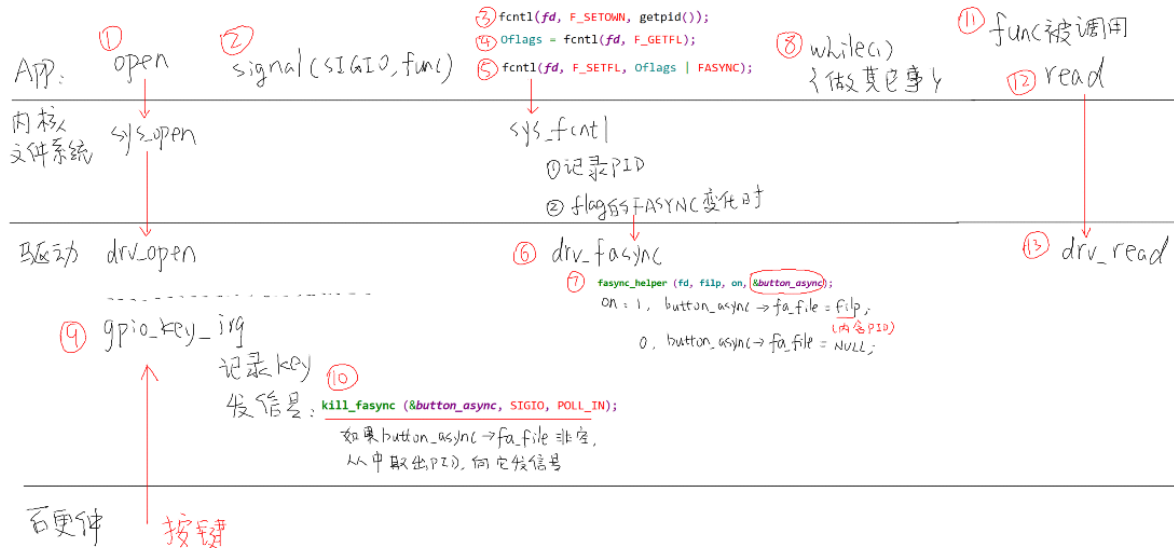 ③ fcntl(fd, F_SETOWN, getpid());
④ Oflags = fcntl(fd, F_GETFL);
⑤ fcntl(fd, F_SETFL, Oflags | FASYNC);
App:
① open
② signal(SIGIO, func)
⑧ while(1)
{做其它事}
⑪ func被调用
⑫ read
内核
文件系统
sys_open
sys_fcntl
①记录PID
② flag的FASYNC变化时
驱动
drv_open
⑥ drv_fasync
⑦ fasync_helper (fd, filp, on, &button_async);
on: 1, button_async→fa_file = filp;
(内含PID)
0, button_async→fa_file = NULL;
⑬ drv_read
⑨ gpio_key_irq
记录key
⑩
发信号: kill_fasync (&button_async, SIGIO, POLL_IN);
如果button_async→fa_file非空,
从中取出PID, 向它发信号
硬件
按键